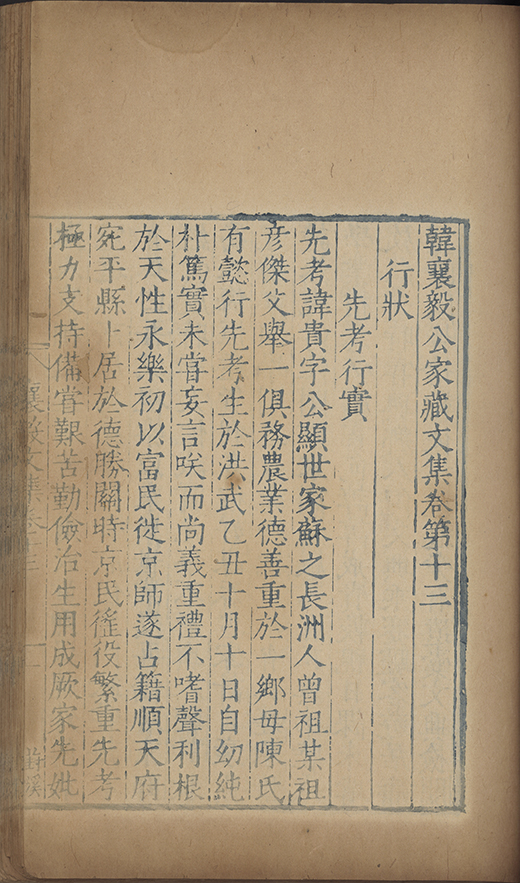 韓襄毅公家藏文集卷第十三
行狀
先考行實
先考諱貴字公顯世家蘇之長洲人曾祖某祖
彥傑父舉一俱務農業德善重於一鄉母陳氏
有懿行先考生於洪武乙丑十月十日自幼純
朴篤實未嘗妄言咲而尚義重禮不嗜聲利根
於天性永樂初以富民徙京師遂占籍順天府
宛平縣卜居於德勝關時京民徭役繁重先考
極力支持備甞艱苦勤儉治生用成厥家先妣
襄毅文集卷十三